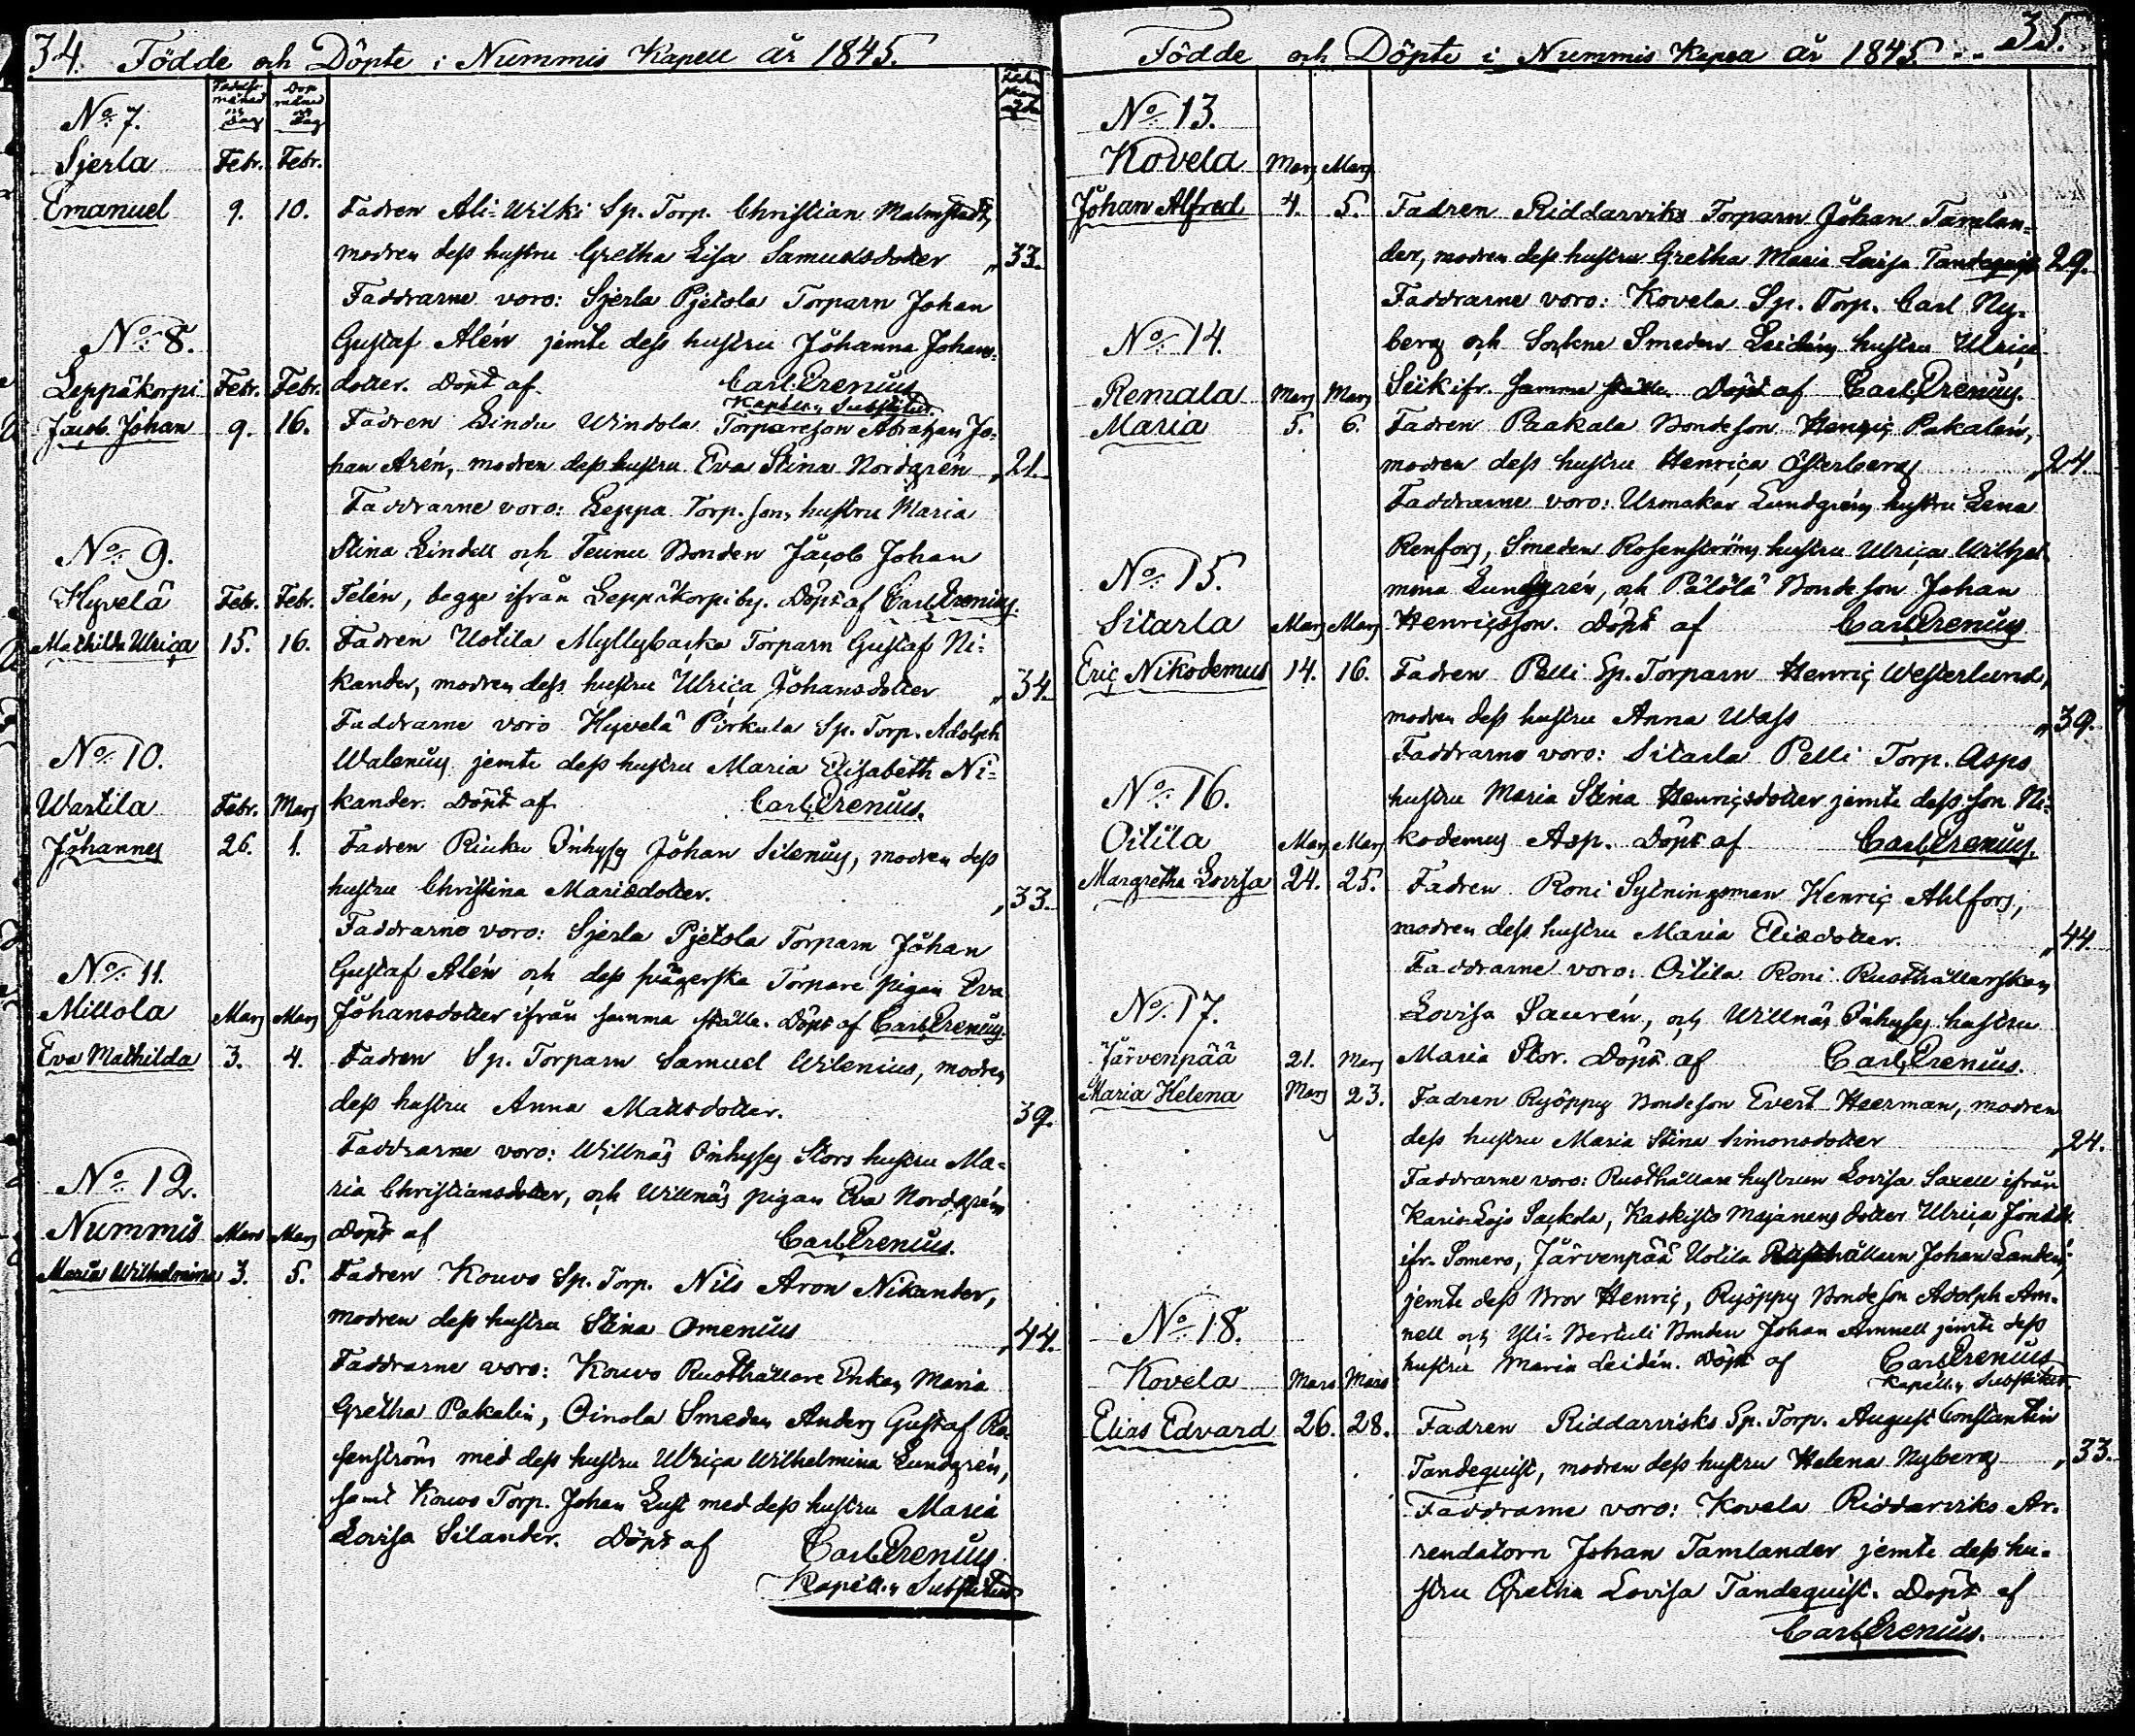 34. Födde och Döpte i Nummis Kapell år 1845.
Födelse månad och dag
Dop månad och dag
No. 7.
Sjerla Febr. Febr.
Emanuel 9. 10. Fadren Ali-Wilki Sp. Torp. Christian Malmstedt,
modren dess hustru Gretha Lisa Samuelsdotter „ 33.
Faddrarne voro: Sjerla Pjetola Torparn Johan
No. 8.
Gustaf Alén jemte dess hustru Johanna Johans-
Leppäkorpi Febr. Febr. dotter. Döpt af Carl Prenius
Kapell.s Substitut.
Jacob Johan 9. 16. Fadren Lindu Windola Torpareson Abraham Jo-
han Arén, modren dess hustru Eva Stina Nordgrén „ 21.
Faddrarne voro: Leppa Torp. sons hustru Maria
No. 9.
Stina Lindell och Teunu Bonden Jacob Johan
Hyvelä Febr. Febr. Telén, begge ifrån Leppäkorpi by. Döpt af Carl Prenius.
Mathilda Ulrica 15. 16. Fadren Uotila Myllybacka Torparn Gustaf Ni-
kander, modren dess hustru Ulrica Johansdotter „ 34.
Faddrarne voro Hyvelä Pirkula Sp. Torp. Adolph
No. 10.
Walenius jemte dess hustru Maria Elisabeth Ni-
Wartila Febr. Mars kander. Döpt af Carl Prenius.
Johannes 26. 1. Fadren Rieku Inhyses Johan Silenius, modren dess
hustru Christina Mariædotter. „ 33.
Faddrarne voro: Sjerla Pjetola Torparn Johan
No. 11.
Gustaf Alén och dess svägerska Torpare pigan Eva
Millola Mars Mars Johansdotter ifrån samma ställe. Döpt af Carl Prenius.
Eva Mathilda 3. 4. Fadren Sp. Torparn Samuel Wilenius, modren
dess hustru Anna Mattsdotter. 39.
Faddrarne voro: Willnäs Inhyses Stors hustru Ma-
No. 12.
ria Christiansdotter, och Willnäs pigan Eva Nordgrén
Nummis Mars Mars Döpt af Carl Prenius.
Maria Wilhelmina 3. 5. Fadren Kouvo Sp. Torp. Nils Aron Nikander,
modren dess hustru Stina Omenius „ 44.
Faddrarne voro: Kouvo Rusthållare Enkan Maria
Gretha Pakalin, Oinola Smeden Anders Gustaf Ro-
senström med dess hustru Ulrica Wilhelmina Lundgrén,
samt Kouvo Torp. Johan Lust med dess hustru Maria
Lovisa Silander. Döpt af Carl Prenius
Kapell.s Substitut
Födde och Döpte i Nummis Kapell år 1845. 35.
No. 13.
Kovela Mars Mars
Johan Alfred 4. 5. Fadren Riddarviks Torparn Johan Tamlan-
der, modren dess hustru Gretha Maria Lovisa Tandequist 29.
Faddrarne voro: Kovela Sp. Torp. Carl Ny-
No. 14.
berg och Sockne Smeden hustru Ulrica
Remala Mars Mars samma ställe Döpt af Carl Prenius.
Maria 5. 6. Fadren Paakala Bondeson Henric Pakalén,
modren dess hustru Henrica Österberg „ 24.
Faddrarne voro: Urmakar Lundgréns hustru Lena
Renfors, Smeden Rosenströms hustru Ulrica Wilhel-
No. 15.
mina Lundgrén, och Pälölä Bondeson Johan
Sitarla Mars Mars Henricsson. Döpt af Carl Prenius
Eric Nikodemus 14. 16. Fadren Pelli Sp. Torparn Henric Westerlund,
modren dess hustru Anna Wass „ 39.
Faddrarne voro: Sitarla Pelli Torp. Asps
No. 16.
hustru Maria Stina Henricsdotter jemte dess son Ni-
Oitila Mars Mars kodemus Asp. Döpt af Carl Prenius.
Margretha Lovisa 24. 25. Fadren Roni Sytningsman Henric Ahlfors,
modren dess hustru Maria Eliædotter. „ 44.
Faddrarne voro: Oitila Roni Rusthållarskan
No. 17.
Lovisa Saurén, och Willnäs Inhyses hustru
Järvenpää 21. Mars Maria Stor. Döpt af Carl Prenius.
Maria Helena Mars 23. Fadren Ryöppy Bondeson Evert Heerman, modren
dess hustru Maria Stina Simonsdotter „ 24.
Faddrarne voro: Rusthållare hustrun Lovisa Saxell ifrån
Karis-Lojo Sackola, Kaskisto Majanens dotter Ulrica
ifr. Somero, Järvenpää Uotila Rusthållarn Johan Landén,
jemte dess Bror Henric, Ryöppy Bondeson Adolph Am-
No. 18.
nell och Yli-Bertuli Bonden Johan Amnell jemte dess
hustru Maria Leidén. Döpt af Carl Prenius
Kapell.s Substitut.
Kovela Mars Mars
Elias Edvard 26. 28. Fadren Riddarviks Sp. Torp. August Constantin
Tandequist, modren dess hustru Helena Nyberg „ 33.
Faddrarne voro: Kovela Riddarviks Ar-
rendatorn Johan Tamlander jemte dess hu-
stru Gretha Lovisa Tandequist. Döpt af
Carl Prenius.